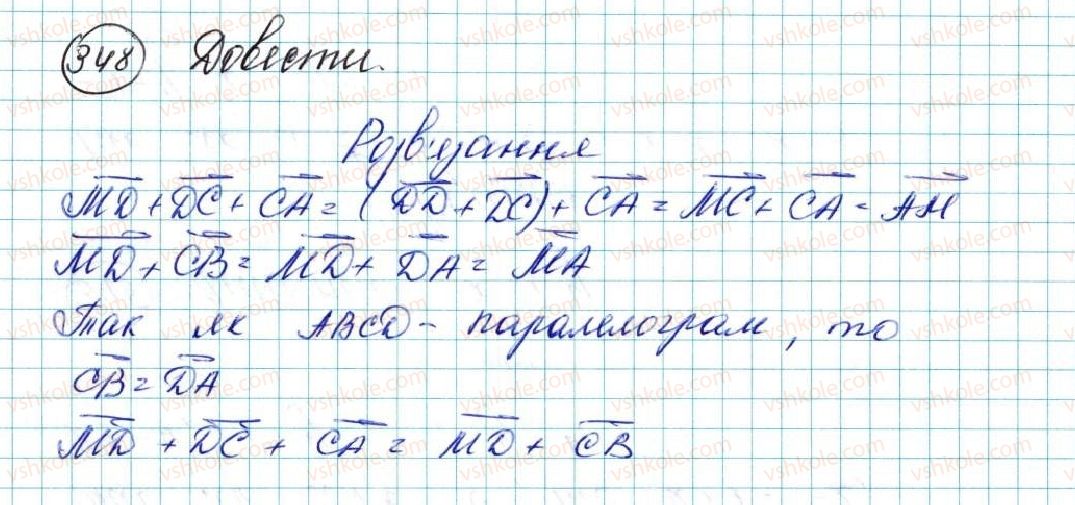 348 Довести.
Розв'язання
MD + DC + CA = (DD + DC) + CA = MC + CA = AM
MD + CB = MD + DA = MA
Так як ABCD - паралелограм, то
CB = DA
MD + DC + CA = MD + CB